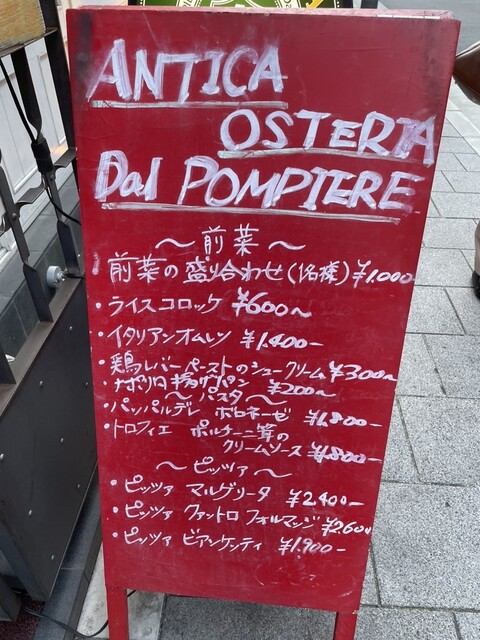 ANTICA
OSTERIA
Dal POMPIERE
～前菜～
・前菜の盛り合わせ(1名様)¥1.000
・ライスコロッケ ¥600～
・イタリアンオムレツ ¥1.400-
・鶏レバーペーストのシュークリーム¥300～
・ナポリの揚げパン ¥200～
～パスタ～
・パッパルデレ ボロネーゼ ¥1.800-
・トロフィエ ポルチーニ茸の
クリームソース ¥1.800-
～ピッツァ～
・ピッツァ マルゲリータ ¥2.400-
・ピッツァ クァットロ フォルマッジ ¥2.600
・ピッツァ ビアンケッティ ¥1.900-